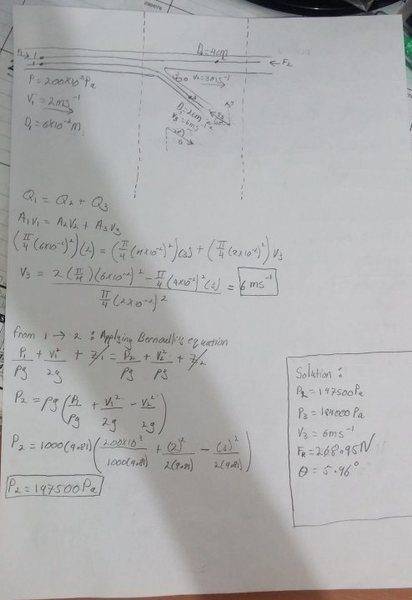 D₂=4cm
F₁→ 1
← F₂
V₂=3ms⁻¹
P=200×10³Pa
V₁=2ms⁻¹
D₁=6×10⁻²m
D₃=2cm
V₃=6ms⁻¹
Q₁ = Q₂ + Q₃
A₁V₁ = A₂V₂ + A₃V₃
(π/4 (6×10⁻²)²)(2) = (π/4 (4×10⁻²)²)(3) + (π/4 (2×10⁻²)²) V₃
V₃ = (2(π/4)(6×10⁻²)² − π/4 (4×10⁻²)² (3)) / (π/4 (2×10⁻²)²) = 6 ms⁻¹
from 1 → 2 : Applying Bernoulli's equation
P₁/ρg + V₁²/2g + Z₁ = P₂/ρg + V₂²/ρg + Z₂
P₂ = ρg (P₁/ρg + V₁²/2g − V₂²/2g)
P₂ = 1000(9.81) (200×10³/1000(9.81) + (2)²/2(9.81) − (3)²/2(9.81))
P₂ = 197500Pa
Solution :
P₂ = 197500Pa
P₃ = 184000Pa
V₃ = 6ms⁻¹
F_R = 268.95N
θ = 5.96°